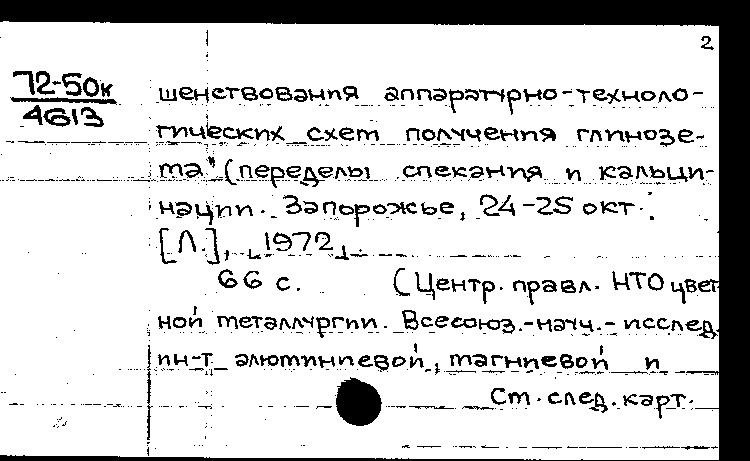 2
72-50к
4613
шенствования аппаратурно-техноло-
гических схем получения глинозе-
ма" (переделы спекания и кальци-
нации. Запорожье, 24-25 окт.
[Л.], 1972.
66 с. (Центр. правл. НТО цвет
ной металлургии. Всесоюз.-науч.-исслед.
ин-т алюминиевой, магниевой и
См. след. карт.